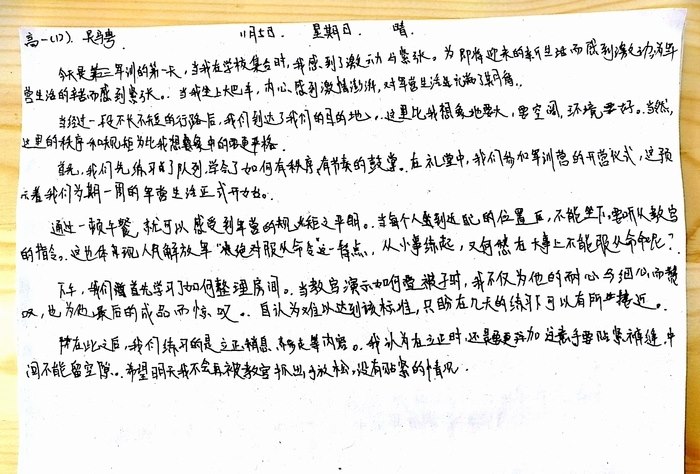 高一(17). 吴 11月5日. 星期日. 晴.
今天是第三军训的第一天,当我在学校集合时,我感到了激动与紧张。为即将迎来的新生活而感到激动,为军
营生活的辛苦而感到紧张。当我坐上大巴车,内心感到激情澎湃,对军营生活是充满了期待。
当经过一段不长不短的行路后,我们到达了我们的目的地。这里比我想象地要大,要空阔,环境要好。当然,
这里的秩序和规矩为比我想象中的要更严格。
首先,我们先练习了队列,学会了如何有秩序,有节奏的鼓掌。在礼堂中,我们参加军训营的开营仪式,这预
示着我们为期一周的军营生活正式开始。
通过一顿午餐,就可以感受到军营的规矩之严明。当每个人坐到匹配的位置后,不能坐下,要听从教官
的指令。这也体现人民解放军“绝对服从命令”这一特点,从小事练起,又何愁在大事上不能服从命令呢?
下午,我们首先学习了如何整理房间。当教官演示如何叠被子时,我不仅为他的耐心与细心而赞
叹,也为他最后的成品而惊叹。自认为难以达到该标准,只盼在几天的练习下可以有所接近。
在此之后,我们练习的是立正稍息,等内容。我认为在立正时,还是要更加注意手要贴紧裤缝,中
间不能留空隙。希望明天我不会再被教官抓出手放松,没有贴紧的情况.